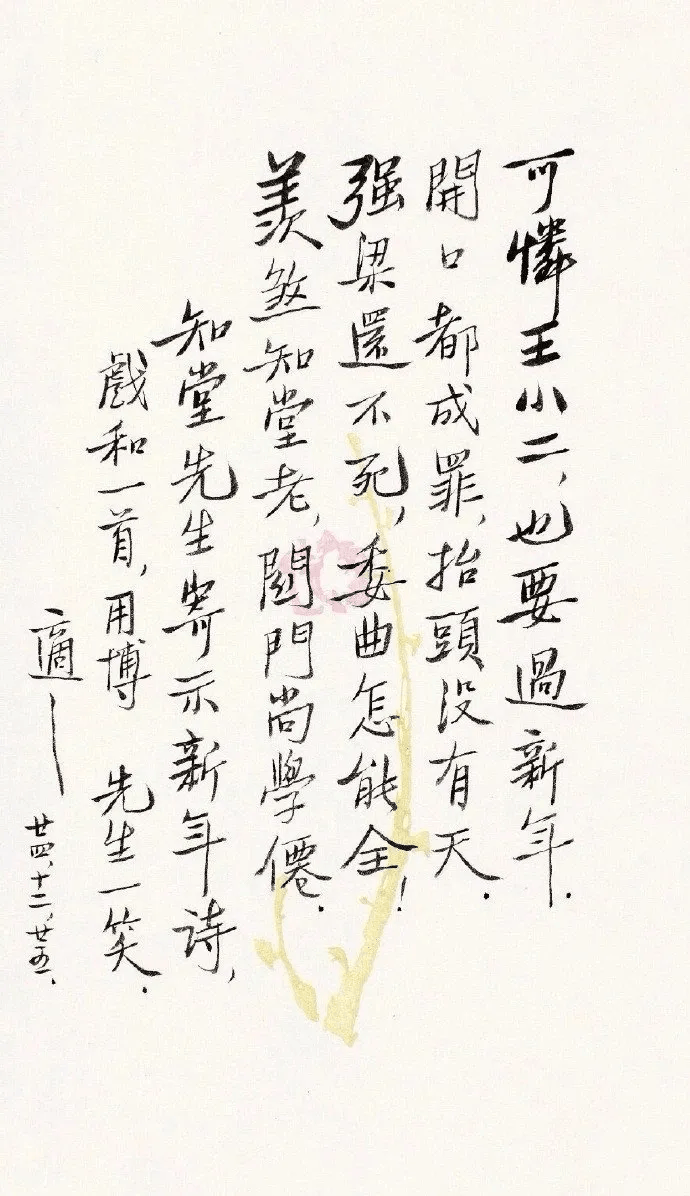 可憐王小二，也要過新年.
開口都成罪，抬頭没有天.
强梁還不死，委曲怎能全！
羨煞知堂老，關門尚學僊.
知堂先生寄示新年诗，
戲和一首，用博 先生一笑.
適
廿四、十二、廿五、